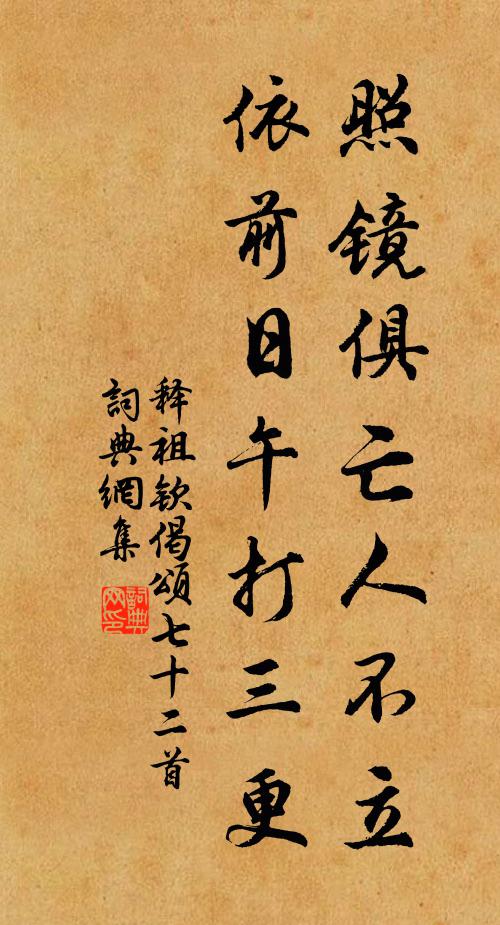 照镜俱亡人不立
依前日午打三更
释祖钦偈頌七十二首
詞典網集
詞典
网印